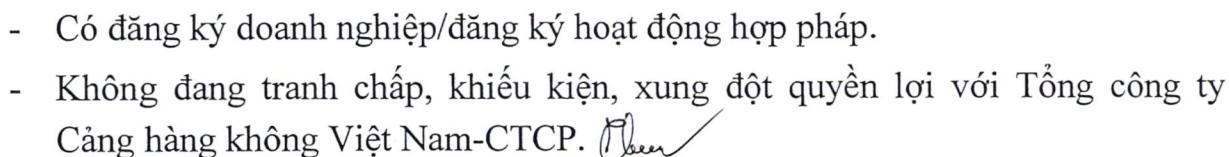 - Có đăng ký doanh nghiệp/đăng ký hoạt động hợp pháp.
- Không đang tranh chấp, khiếu kiện, xung đột quyền lợi với Tổng công ty
Cảng hàng không Việt Nam-CTCP.